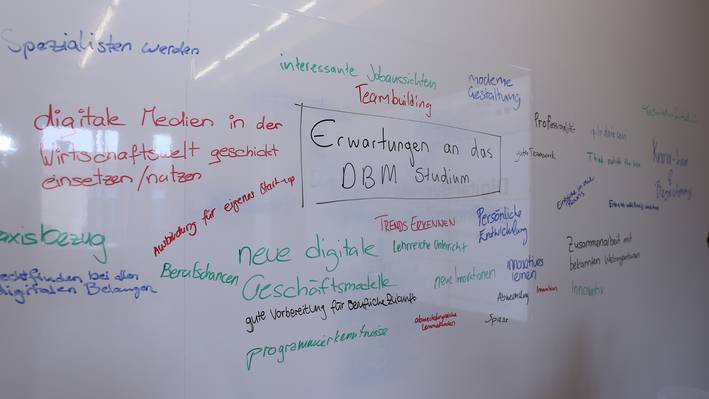 Spezialisten werden
interessante Jobaussichten
Teambuilding
moderne
Gestaltung
digitale Medien in der
Wirtschaftswelt geschickt
einsetzen/nutzen
Erwartungen an das
DBM Studium
gute Teamwork
Think outside the box
Know-how
&
Ausbildung für eigenes Start-up
TRENDS ERKENNEN
Persönliche
Entwicklung
axisbezug
echtfinden bei den
digitalen Belangen
Berufschancen
neue digitale
Geschäftsmodelle
Lehrreiche Unterricht
neue Innovationen
innovatives
lernen
Zusammenarbeit mit
bekannten
Abwechslung
Innovation
Innovativ
gute Vorbereitung für berufliche Zukunft
abwechslungsreiche
Lernmethoden
Spass
programmierkenntnisse